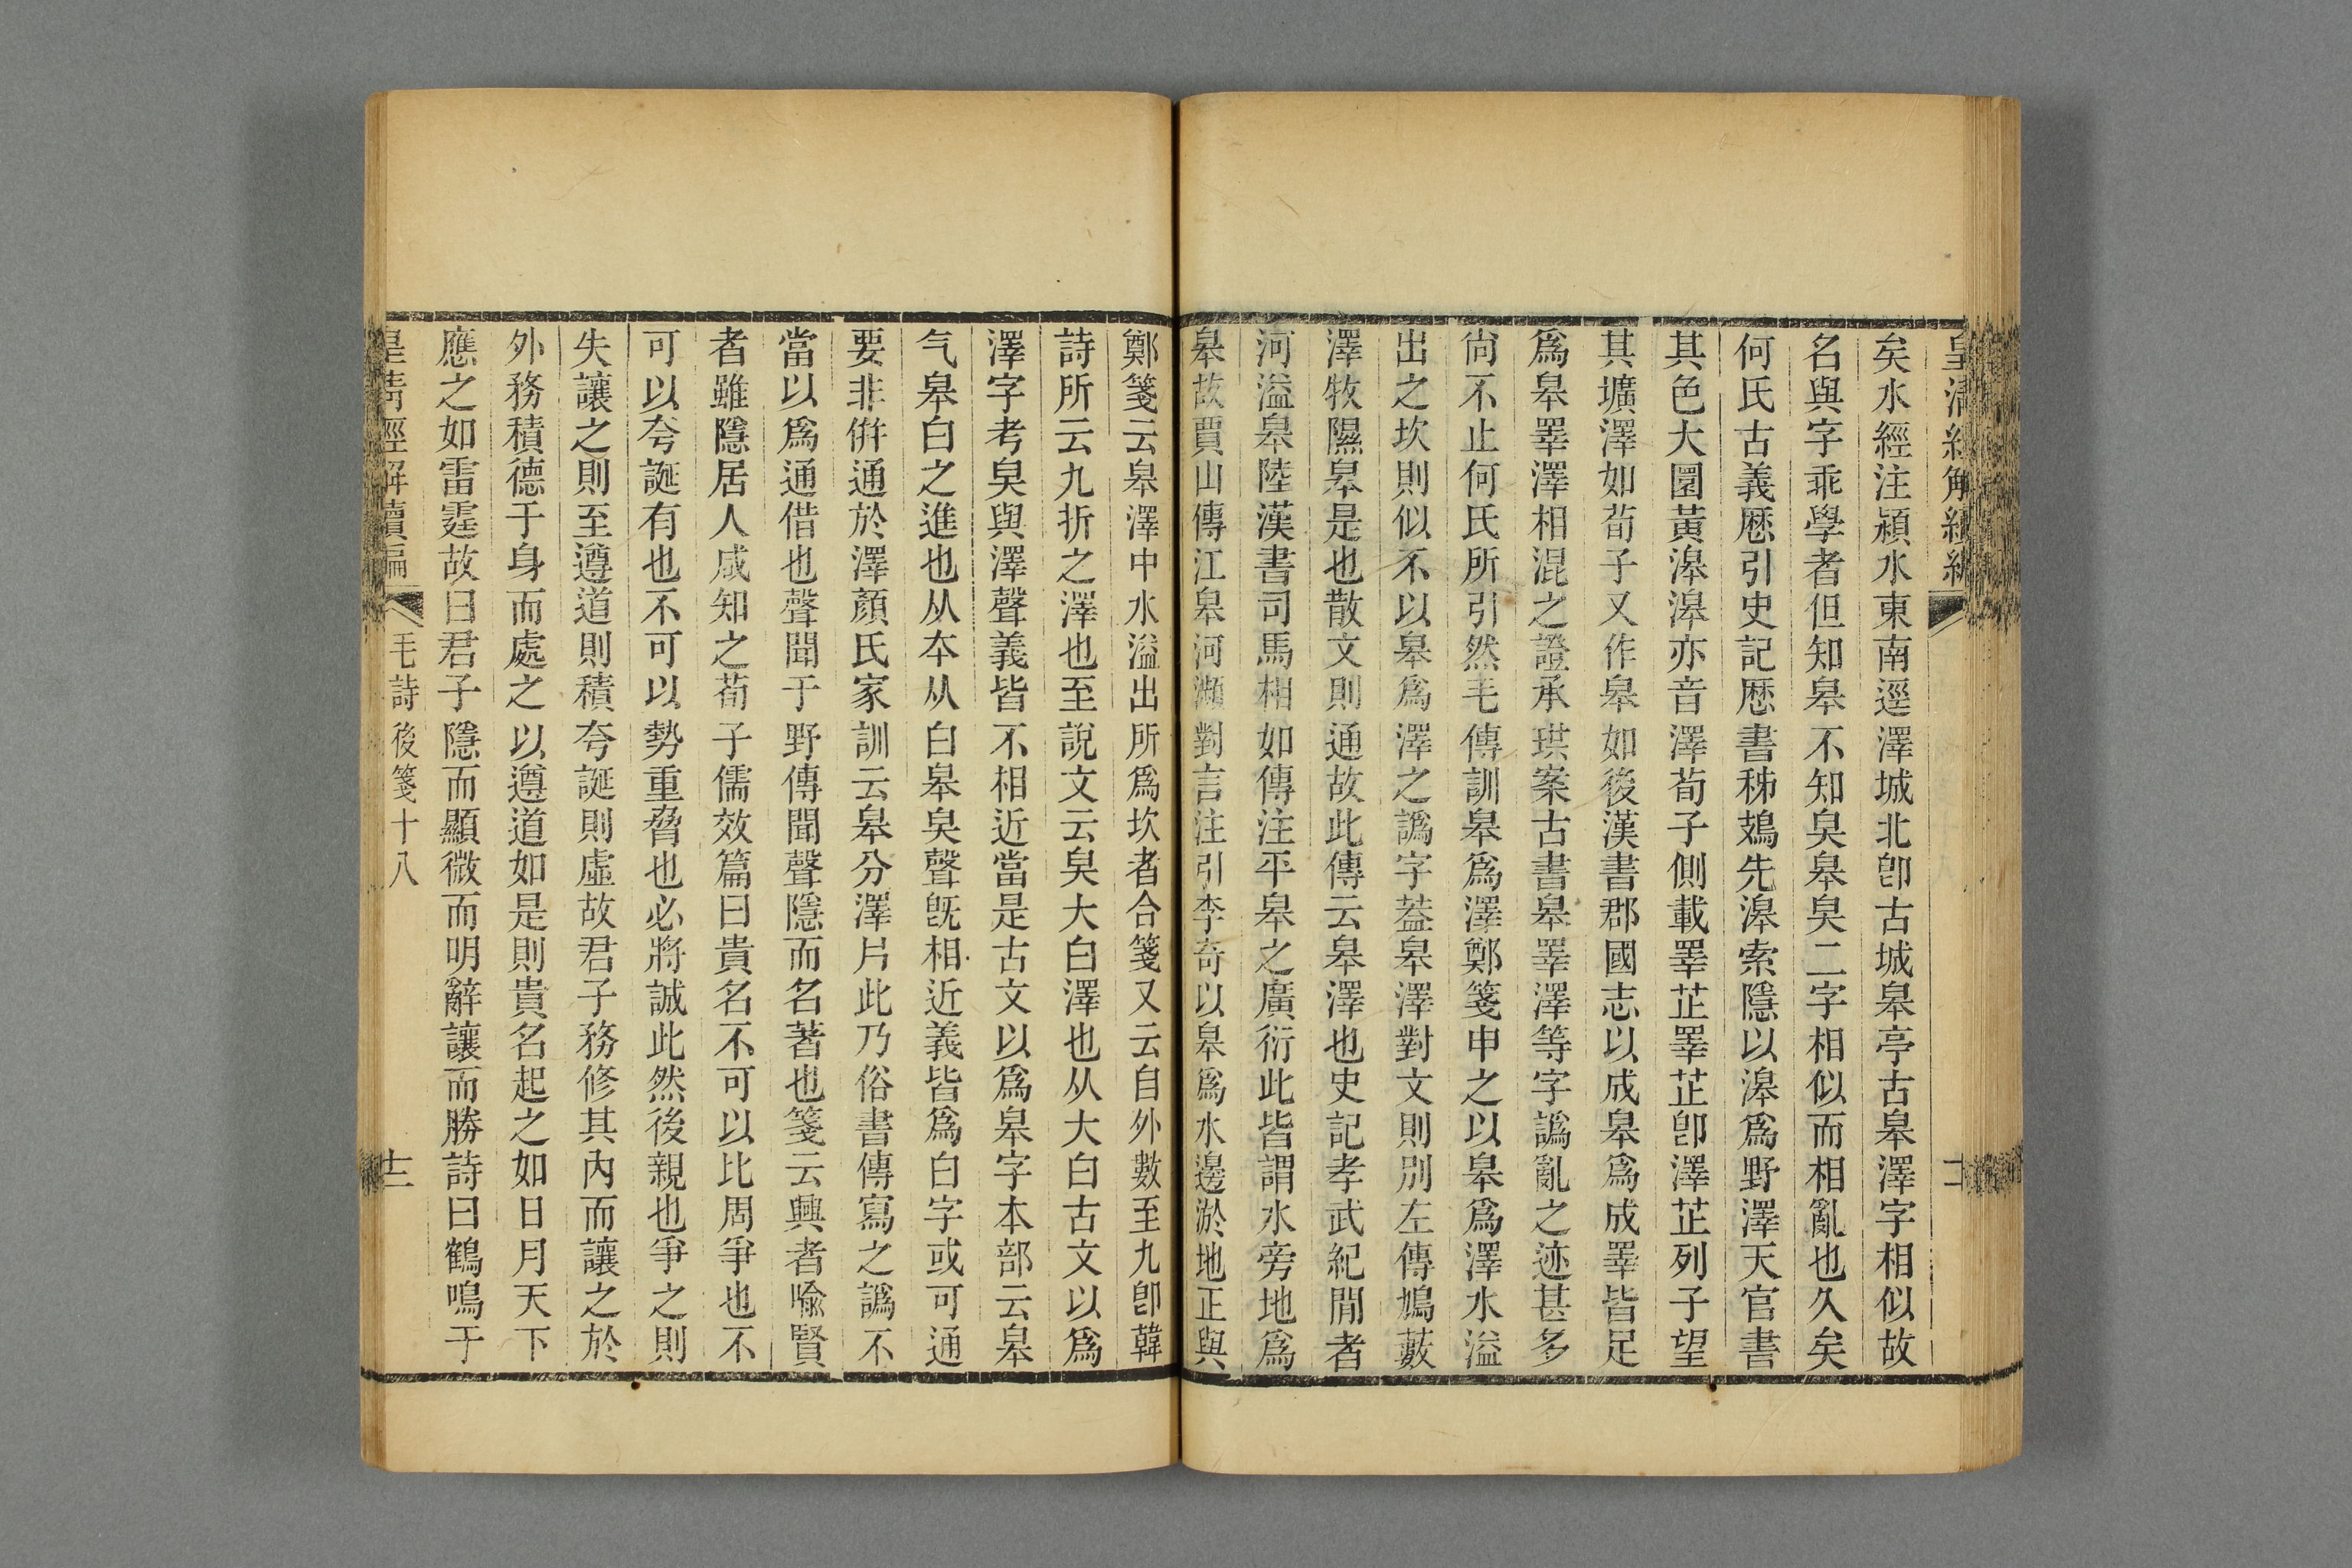 矣水經注潁水東南逕澤城北卽古城皋亭古皋澤字相似故
名與字乖學者但知皋不知臭皋臭二字相似而相亂也久矣
何氏古義厯引史記厯書秭鴂先滜索隱以滜爲野澤天官書
其色大圜黃滜滜亦音澤荀子側載睪芷睪芷卽澤芷列子望
其壙澤如荀子又作皋如後漢書郡國志以成皋爲成睪皆足
爲皋睪澤相混之證承珙案古書皋睪澤等字譌亂之迹甚多
尙不止何氏所引然毛傳訓皋爲澤鄭箋申之以皋爲澤水溢
出之坎則似不以皋爲澤之譌字葢皋澤對文則別左傳鳩藪
澤牧隰皋是也散文則通故此傳云皋澤也史記孝武紀閒者
河溢皋陸漢書司馬相如傳注平皋之廣衍此皆謂水旁地爲
皋故賈山傳江皋河瀕對言注引李奇以皋爲水邊淤地正與
鄭箋云皋澤中水溢出所爲坎者合箋又云自外數至九卽韓
詩所云九折之澤也至說文云臭大白澤也从大白古文以爲
澤字考臭與澤聲義皆不相近當是古文以爲皋字本部云皋
气皋白之進也从夲从白皋臭聲旣相近義皆爲白字或可通
要非倂通於澤顏氏家訓云皋分澤片此乃俗書傳寫之譌不
當以爲通借也聲聞于野傳聞聲隱而名著也箋云興者喩賢
者雖隱居人咸知之荀子儒效篇曰貴名不可以比周爭也不
可以夸誕有也不可以勢重脅也必將誠此然後親也爭之則
失讓之則至遵道則積夸誕則虛故君子務修其內而讓之於
外務積德于身而處之以遵道如是則貴名起之如日月天下
應之如雷霆故曰君子隱而顯微而明辭讓而勝詩曰鶴鳴于
皇淸經解續編
毛詩後箋十八
十二